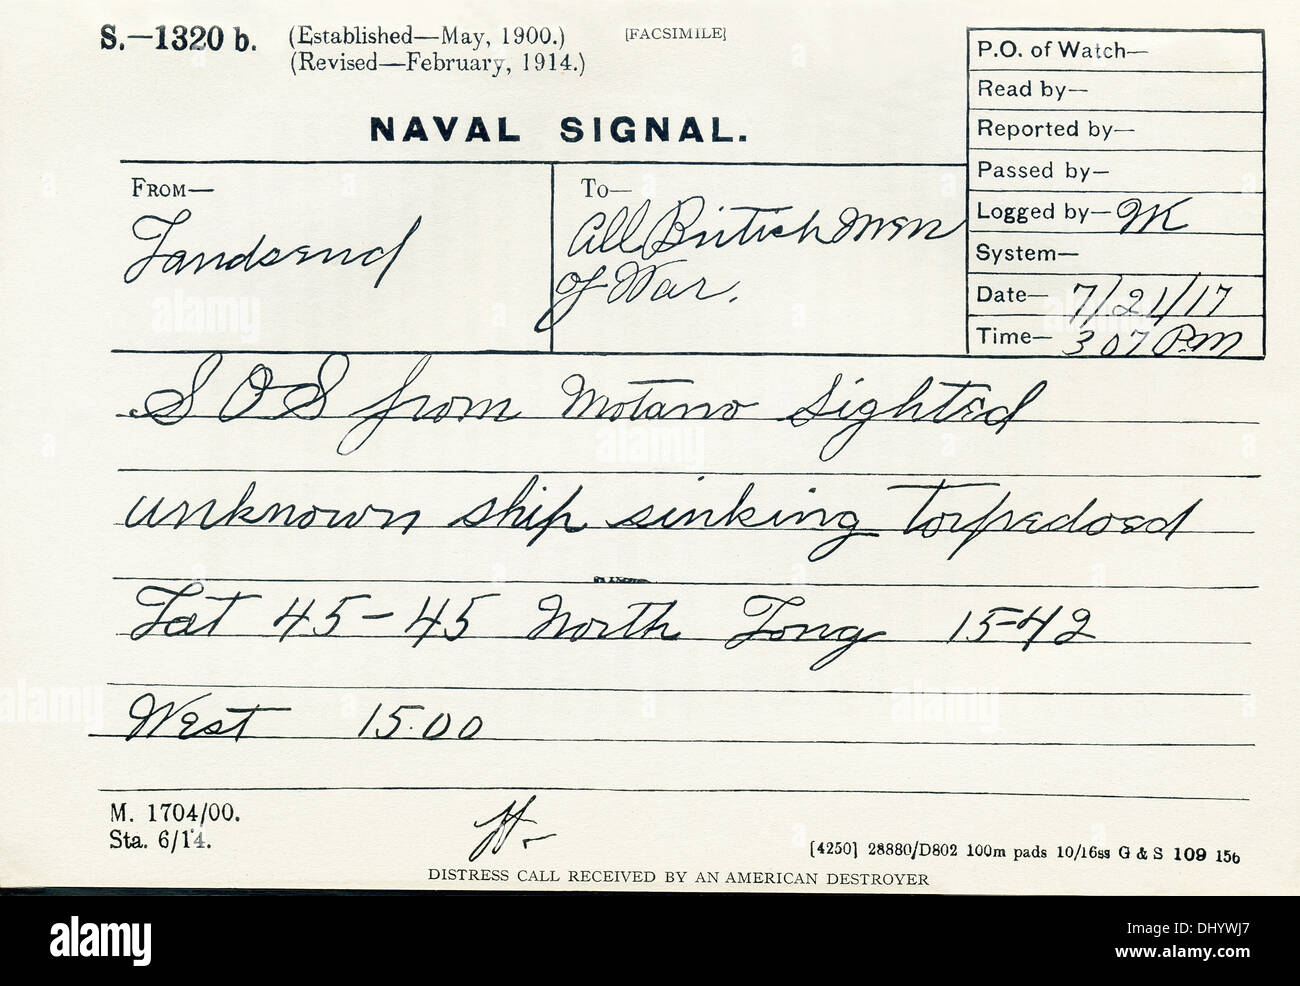 S.—1320 b. (Established—May, 1900.) [FACSIMILE]
(Revised—February, 1914.)
NAVAL SIGNAL.
P.O. of Watch—
Read by—
Reported by—
Passed by—
Logged by— WK
System—
Date— 7/21/17
Time— 3 07 P.M
FROM—
Landsend
To—
All British Men
of War.
S O S from Motano sighted
unknown ship sinking torpedoed
Lat 45-45 North Long 15-42
West 15.00
M. 1704/00.
Sta. 6/14.
[4250] 28880/D802 100m pads 10/16ss G & S 109 15b
DISTRESS CALL RECEIVED BY AN AMERICAN DESTROYER
alamy
Image ID: DHYWJ7
www.alamy.com